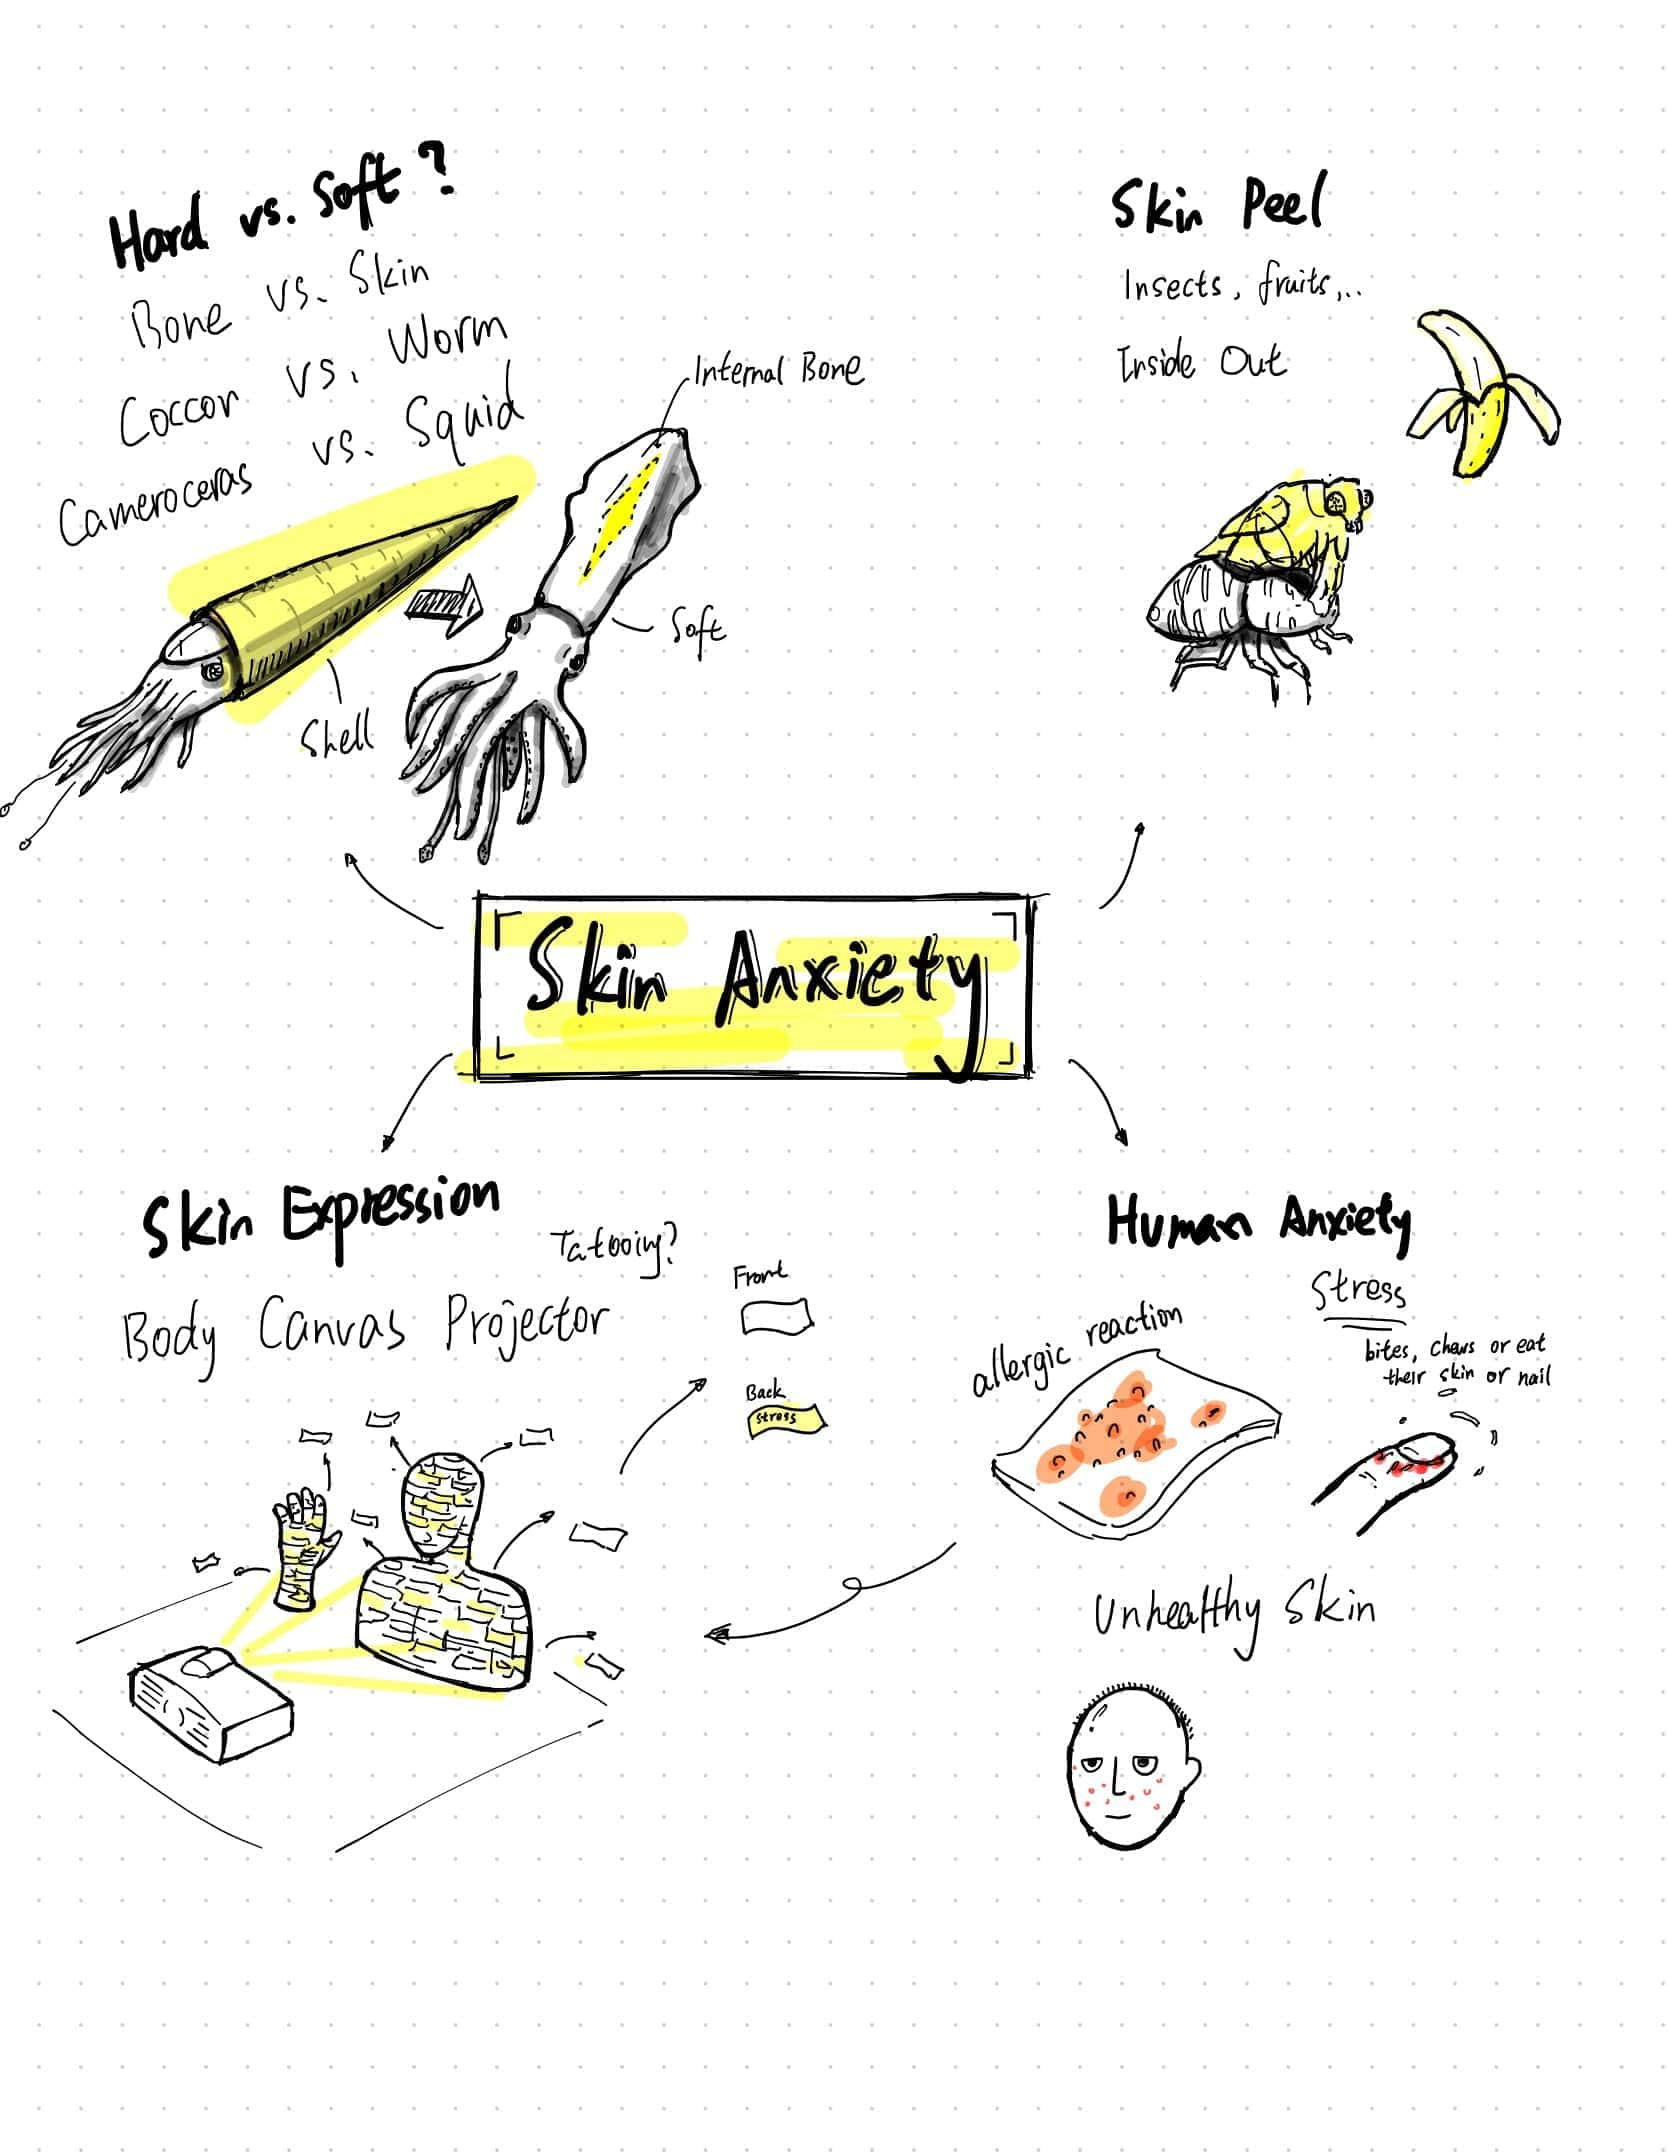 Hard vs. Soft?
Bone vs. Skin
Coccor vs. Worm
Cameroceras vs. Squid
Internal Bone
Soft
Shell
Skin Peel
Insects, fruits,..
Inside Out
Skin Anxiety
Skin Expression
Tatooing?
Body Canvas Projector
Front
Back
stress
Human Anxiety
Stress
bites, chews or eat
their skin or nail
allergic reaction
Unhealthy Skin